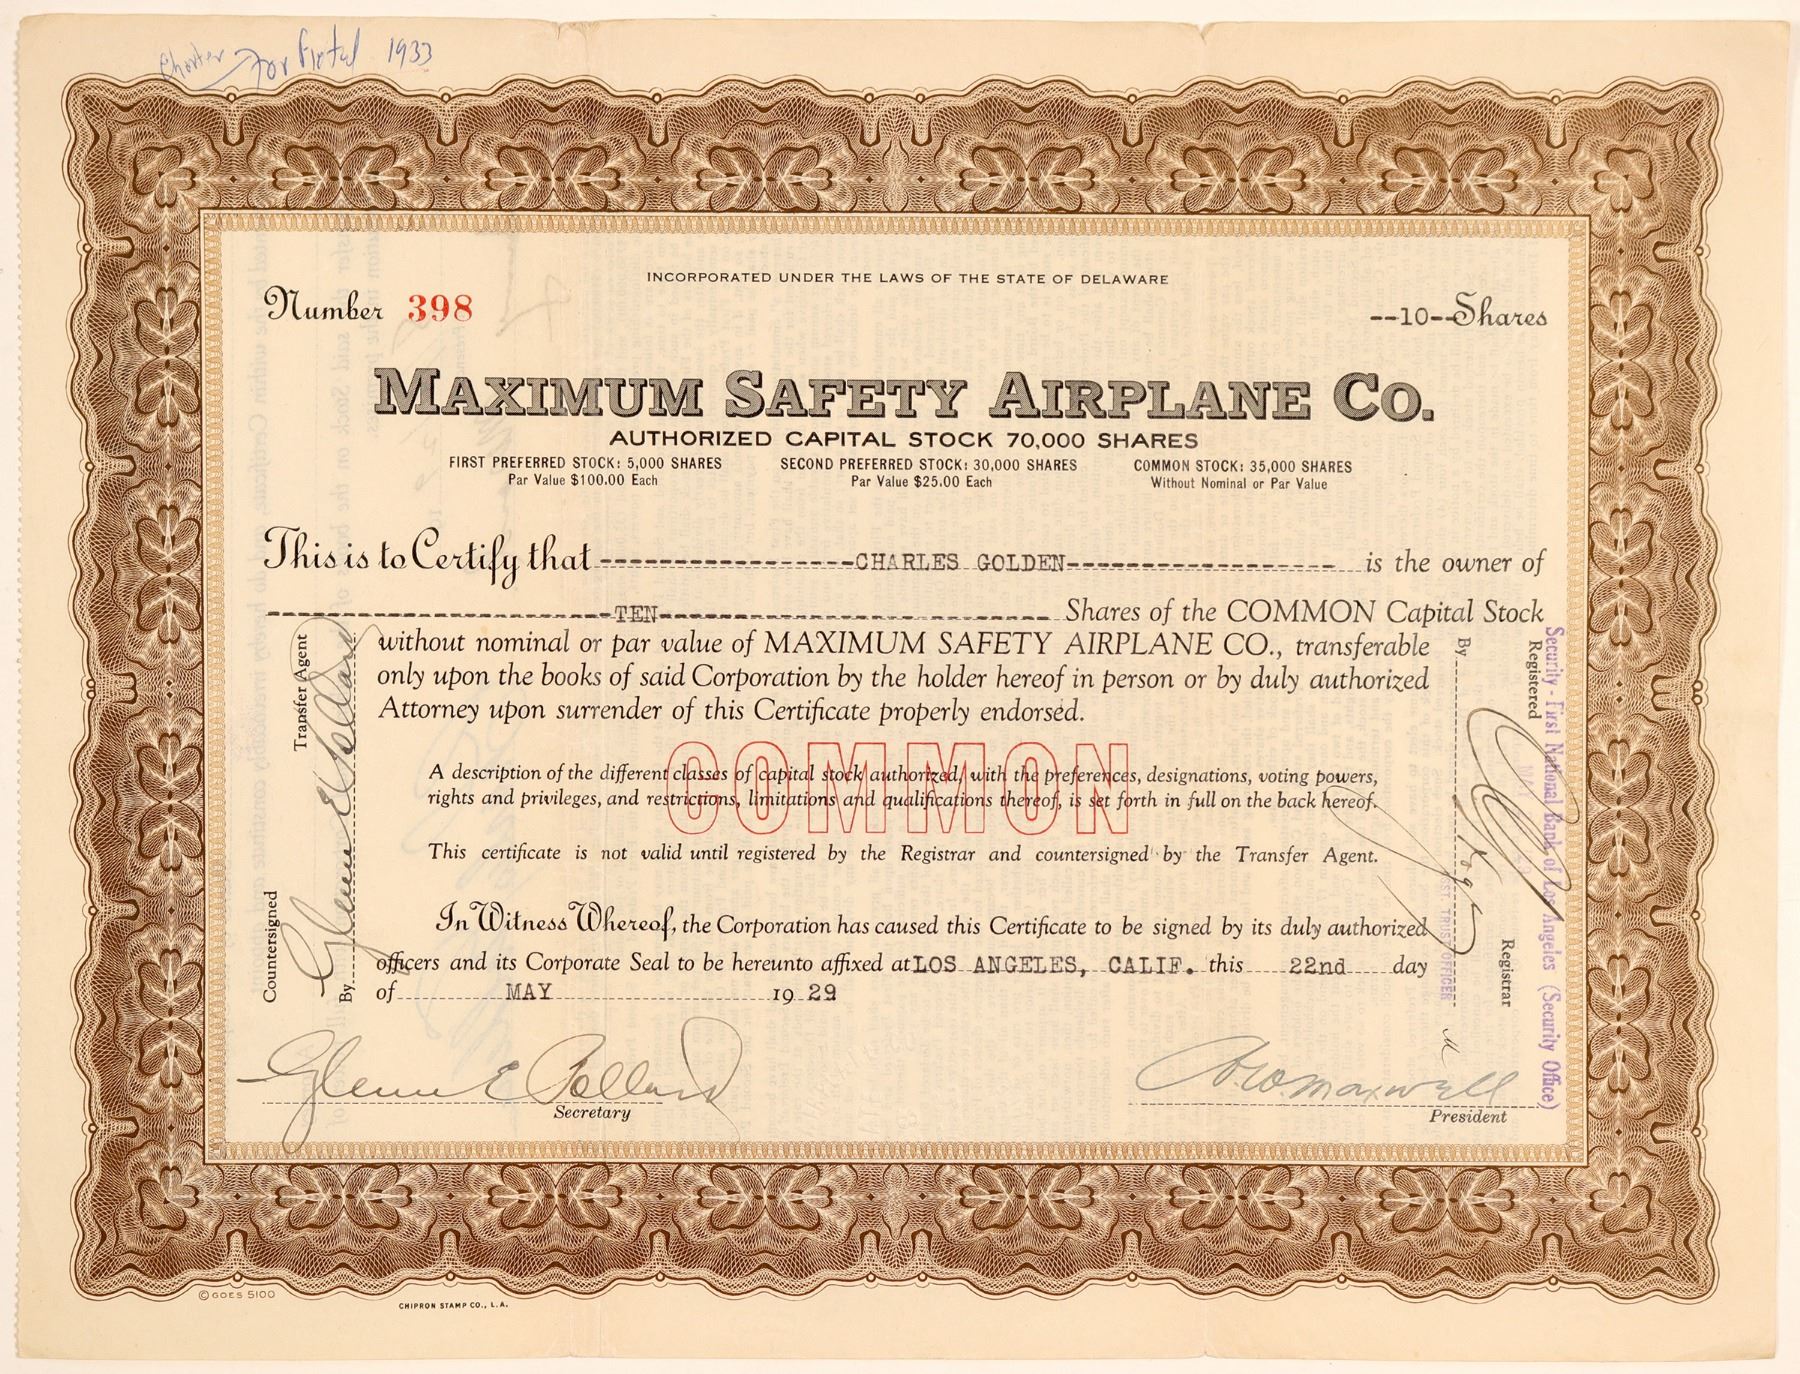 Charter For Fietal 1933
INCORPORATED UNDER THE LAWS OF THE STATE OF DELAWARE
Number 398
--10--Shares
MAXIMUM SAFETY AIRPLANE CO.
AUTHORIZED CAPITAL STOCK 70,000 SHARES
FIRST PREFERRED STOCK: 5,000 SHARES
Par Value $100.00 Each
SECOND PREFERRED STOCK: 30,000 SHARES
Par Value $25.00 Each
COMMON STOCK: 35,000 SHARES
Without Nominal or Par Value
This is to Certify that CHARLES GOLDEN is the owner of
TEN Shares of the COMMON Capital Stock
without nominal or par value of MAXIMUM SAFETY AIRPLANE CO., transferable
only upon the books of said Corporation by the holder hereof in person or by duly authorized
Attorney upon surrender of this Certificate properly endorsed.
COMMON
A description of the different classes of capital stock authorized, with the preferences, designations, voting powers,
rights and privileges, and restrictions, limitations and qualifications thereof, is set forth in full on the back hereof.
This certificate is not valid until registered by the Registrar and countersigned by the Transfer Agent.
In Witness Whereof, the Corporation has caused this Certificate to be signed by its duly authorized
officers and its Corporate Seal to be hereunto affixed at LOS ANGELES, CALIF. this 22nd day
of MAY 19 29
Glenn E Pollard
Secretary
B.W. Maxwell
President
Countersigned
Transfer Agent
By Glenn E Pollard
Registered
Registrar
Security-First National Bank of Los Angeles (Security Office)
By
ASST. TRUST OFFICER
© GOES 5100
CHIPRON STAMP CO., L.A.